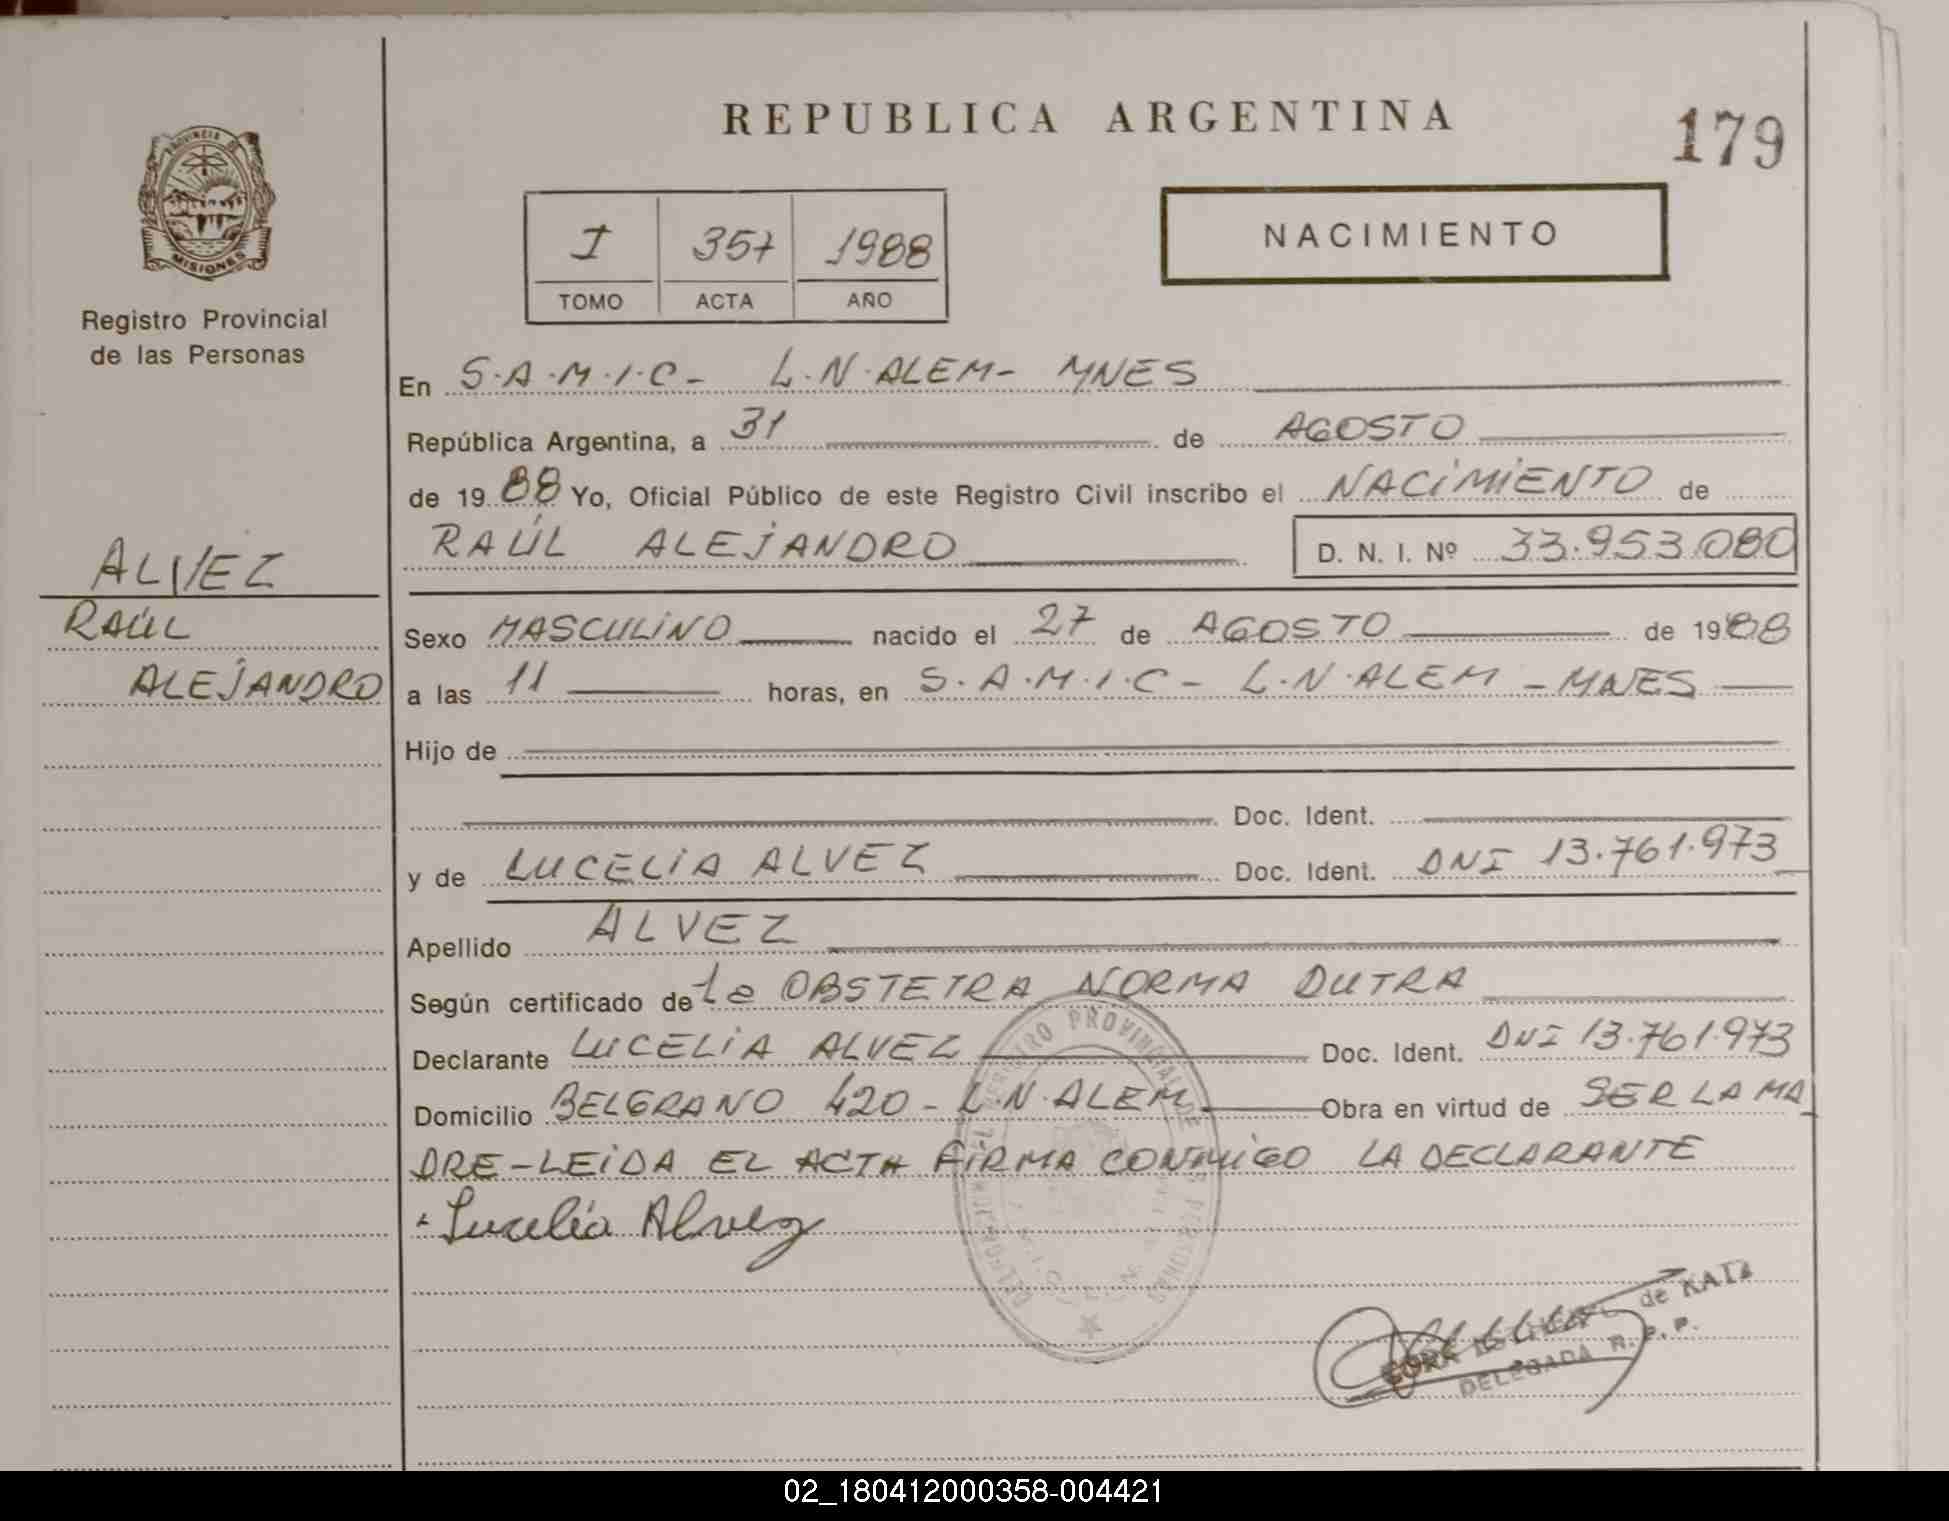 REPUBLICA ARGENTINA
179
PROVINCIA DE
MISIONES
Registro Provincial
de las Personas
I 357 1988
TOMO ACTA AÑO
NACIMIENTO
En S.A.M.I.C- L.N.ALEM- MNES
República Argentina, a 31 de AGOSTO
de 1988 Yo, Oficial Público de este Registro Civil inscribo el NACIMIENTO de
RAÚL ALEJANDRO D. N. I. Nº 33.953.080
ALVEZ
RAÚL
ALEJANDRO
Sexo MASCULINO nacido el 27 de AGOSTO de 1988
a las 11 horas, en S.A.M.I.C- L.N.ALEM - MNES
Hijo de
Doc. Ident.
y de LUCELIA ALVEZ Doc. Ident. DNI 13.761.973
Apellido ALVEZ
Según certificado de la OBSTETRA NORMA DUTRA
Declarante LUCELIA ALVEZ Doc. Ident. DNI 13.761.973
Domicilio BELGRANO 420- L.N.ALEM Obra en virtud de SER LA MA
DRE-LEIDA EL ACTA FIRMA CONMIGO LA DECLARANTE
Lucelia Alvez
REGISTRO PROVINCIAL DE LAS PERSONAS
de KATZ
DELEGADA R. P. P.
02_180412000358-004421